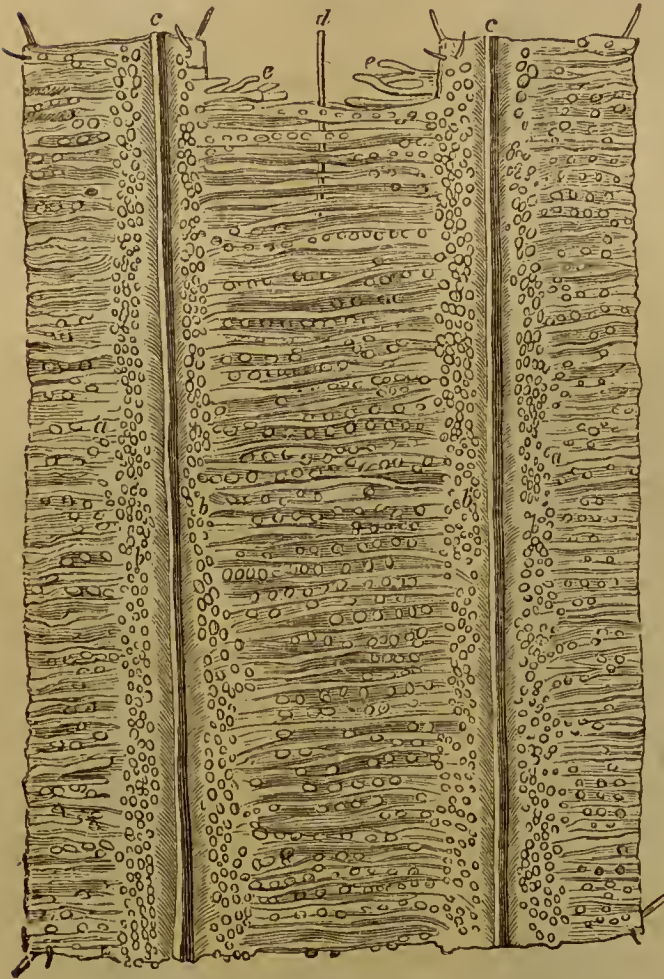 c d c
e e
a
a
b b
b b
a